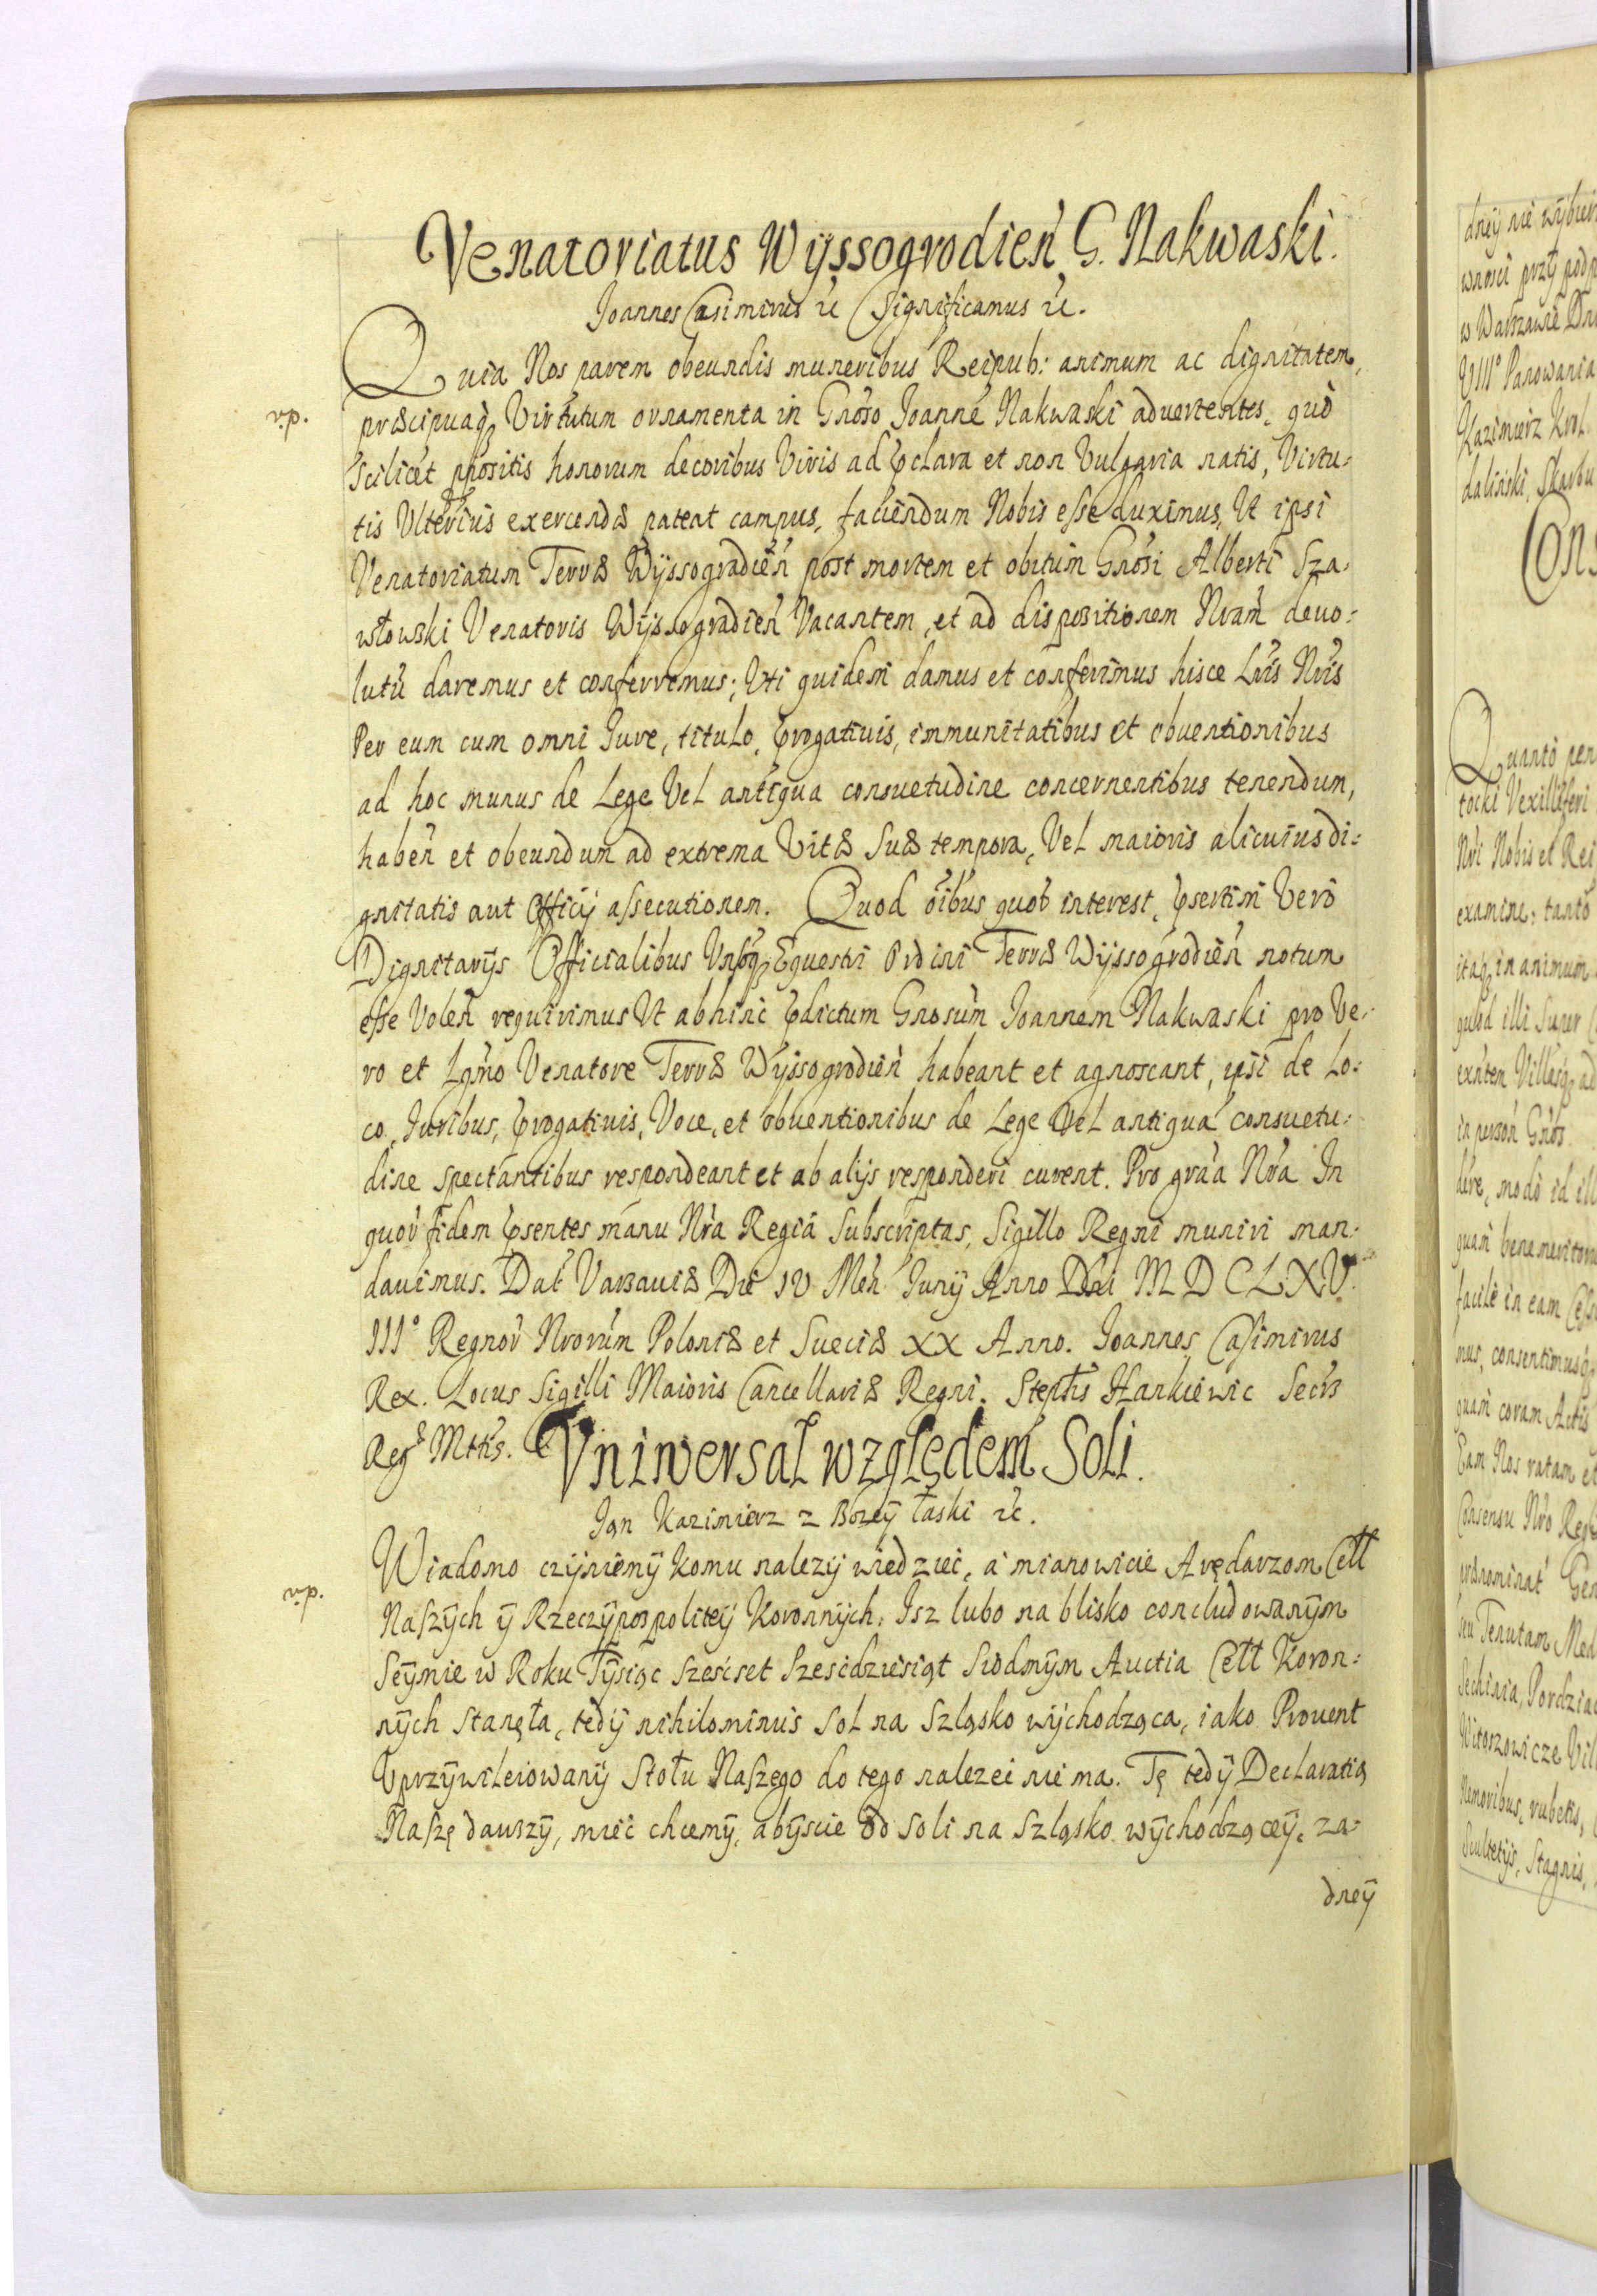 Venatoriatus Wyssogrodień G. Nakwaski.
Joannes Casimirus etc Significamus etc.
Quia Nos parem obeundis muneribus Reipub: animum ac dignitatem,
v.p.
præcipuaq; Virtutum ornamenta in Gnoso Joanne Nakwaski aduertentes, quò
scilicet ppositis honorum decoribus Viris ad pclara et non Vulgaria natis, Virtu-
tis Ulterius exercendæ pateat campus, faciendum Nobis esse duximus, Ut ipsi
Venatoriatum Terræ Wyssogradień post mortem et obitum Gnosi Alberti Sza-
włowski Venatoris Wyssogradień Vacantem, et ad dispositionem Nram deuo-
lutũ daremus et conferremus; Uti quidem damus et conferimus hisce Lris Nris
Per eum cum omni Jure, titulo, progatiuis, immunitatibus et obuentionibus
ad hoc munus de Lege Vel antiqua consuetudine concernentibus tenendum,
habeń et obeundum ad extrema Vitæ Suæ tempora, Vel maioris alicuius di-
gnitatis aut Officij assecutionem. Quod oibus quor interest, psertim Vero
Dignitarijs Officialibus Vnsoq; Equestri Ordini Terræ Wyssogrodień notum
esse Voleń requirimus Ut abhinc pdictum Gnosum Joannem Nakwaski pro Ve-
ro et Lgmo Venatore Terræ Wyssogrodień habeant et agnoscant, ipsi de Lo-
co, Juribus, progatiuis, Voce, et obuentionibus de Lege Vel antiqua consuetu-
dine spectantibus respondeant et ab alijs responderi curent. Pro gra'a Nra In
quor fidem psentes manu Nra Regia Subscriptas, Sigillo Regni muniri man-
dauimus. Dat Varsauiæ Die IV Meń Junij Anno Dni M D C L X V
III° Regnor Nrorum Poloniæ et Sueciæ XX Anno. Joannes Casimirus
Rex. Locus Sigilli Maioris Cancellariæ Regni. Stephs Hankiewic Secrs
Regæ Mttis.
Vniwersał względem Soli.
Jan Kazimierz z Bozey łaski etc.
Wiadomo czyniemy komu nalezy wiedziec, a mianowicie Arędarzom Cełł
v.p.
Naszych y Rzeczypospolitey Koronnych: Jsz lubo na blisko concludowanym
Seymie w Roku Tysiąc szescset szescdziesiąt siodmym Auctia Cełł Koron-
nych stanęła, tedy nihilominus sol na Szląsko wychodząca, iako Prouent
Uprzywileiowany Stołu Naszego do tego nalezeć nie ma. Tę tedy Declaratią
Naszę dawszy, mieć chcemy, abyscie od soli na Szląsko wychodzącey, za-
dney
dney nie wybier
wnosci przy podp
w Warszawie Dn
VIII° Panowania
Kazimierz Krol.
daliński, Skarbu
Cons
Quanto pen
tocki Vexilliferi
Nri Nobis et Rei
examine: tanto
itaq; in animum
quod illi Super
exntem Villasq; ad
in person Gnos
dere, modo id ill
quam benemeritoru
facile in eam Cess
mus, consentimusq;
quam coram Actis
Eam Nos ratam et
Consensu Nro Regi
prænominat Gen
seu Tenutam Med
Sechinia, Pordzia
Witoszowicze Vil
Nemoribus, rubetis,
Scultetijs, Stagnis,